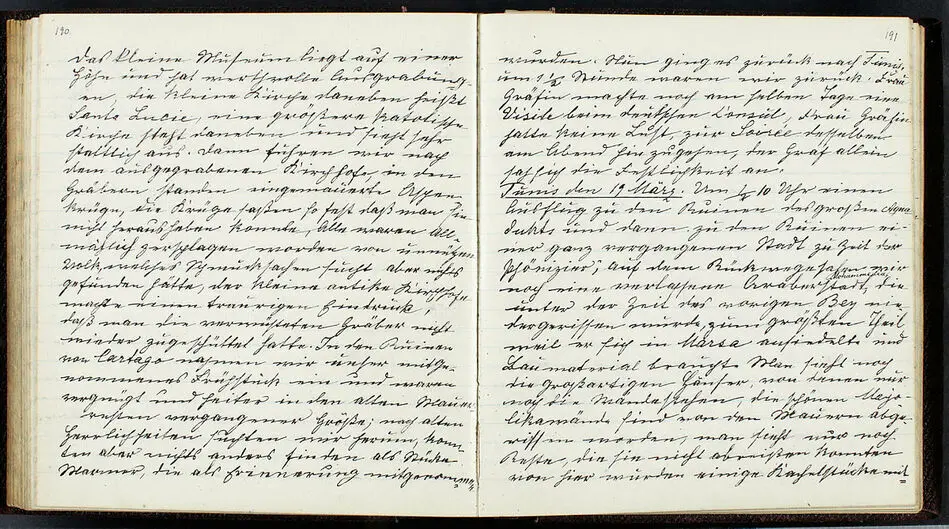 190.
das kleine Museum liegt auf einer
Höhe und hat werthvolle Ausgrabung-
en, die kleine Kirche daneben heißt
Santa Lucie, eine größere katolische
Kirche steht daneben und sieht sehr
stattlich aus. Dann fuhren wir nach
dem ausgegrabenen Kirchhofe, in den
Gräbern standen eingemauerte Aschen
krüge, die Krüge saßen so fest daß man sie
nicht herausheben konnte, Alle waren All
mählich zerschlagen worden von unnützen
Volk, welches Schmucksachen sucht aber nichts
gefunden hatte, der kleine antike Kirchhof
machte einen traurigen Eindruck,
daß man die verwüsteten Gräber nicht
wieder zugeschüttet hatte. In den Ruinen
von Cartago nahmen wir unser mitge-
nommenes Frühstück ein und waren
vergnügt und heiter in den alten Mauer
resten vergangener Größe; nach alten
Herrlichkeiten suchten wir herum, konn
ten aber nichts anders finden als Stücke
Marmor, die als Erinnerung mitgenommen
191
wurden. Nun ging es zurück nach Tunis,
um 1½ Stunde waren wir zurück. Frau
Gräfin machte noch am selben Tage eine
Visite beim deutschen Consul, Frau Gräfin
hatte keine Lust, zur Soiree desselben
am Abend hinzugehen, der Graf allein
sah sich die Festlichkeit an.
Tunis den 19 März. Um 10 Uhr einen
Ausflug zu den Ruinen des großen Aqua-
dukts und dann zu den Ruinen ei-
ner ganz vergangenen Stadt zu Zeit der
Phönizier, auf dem Rückwege sahen wir
noch eine verlassene Araberstadt, die
unter der Zeit des vorigen Bey nie-
dergerissen wurde, zum größten Theil
weil er sich in Marsa ansiedelte und
Baumaterial brauchte Man sieht noch
die großartigen Häuser, von denen nur
noch die Wände stehen, die schönen Majo-
likawände sind von den Mauern abge-
rissen worden, man sieht nur noch
Reste, die sie nicht abreißen konnten
von hier wurden einige Kachelstücke mit